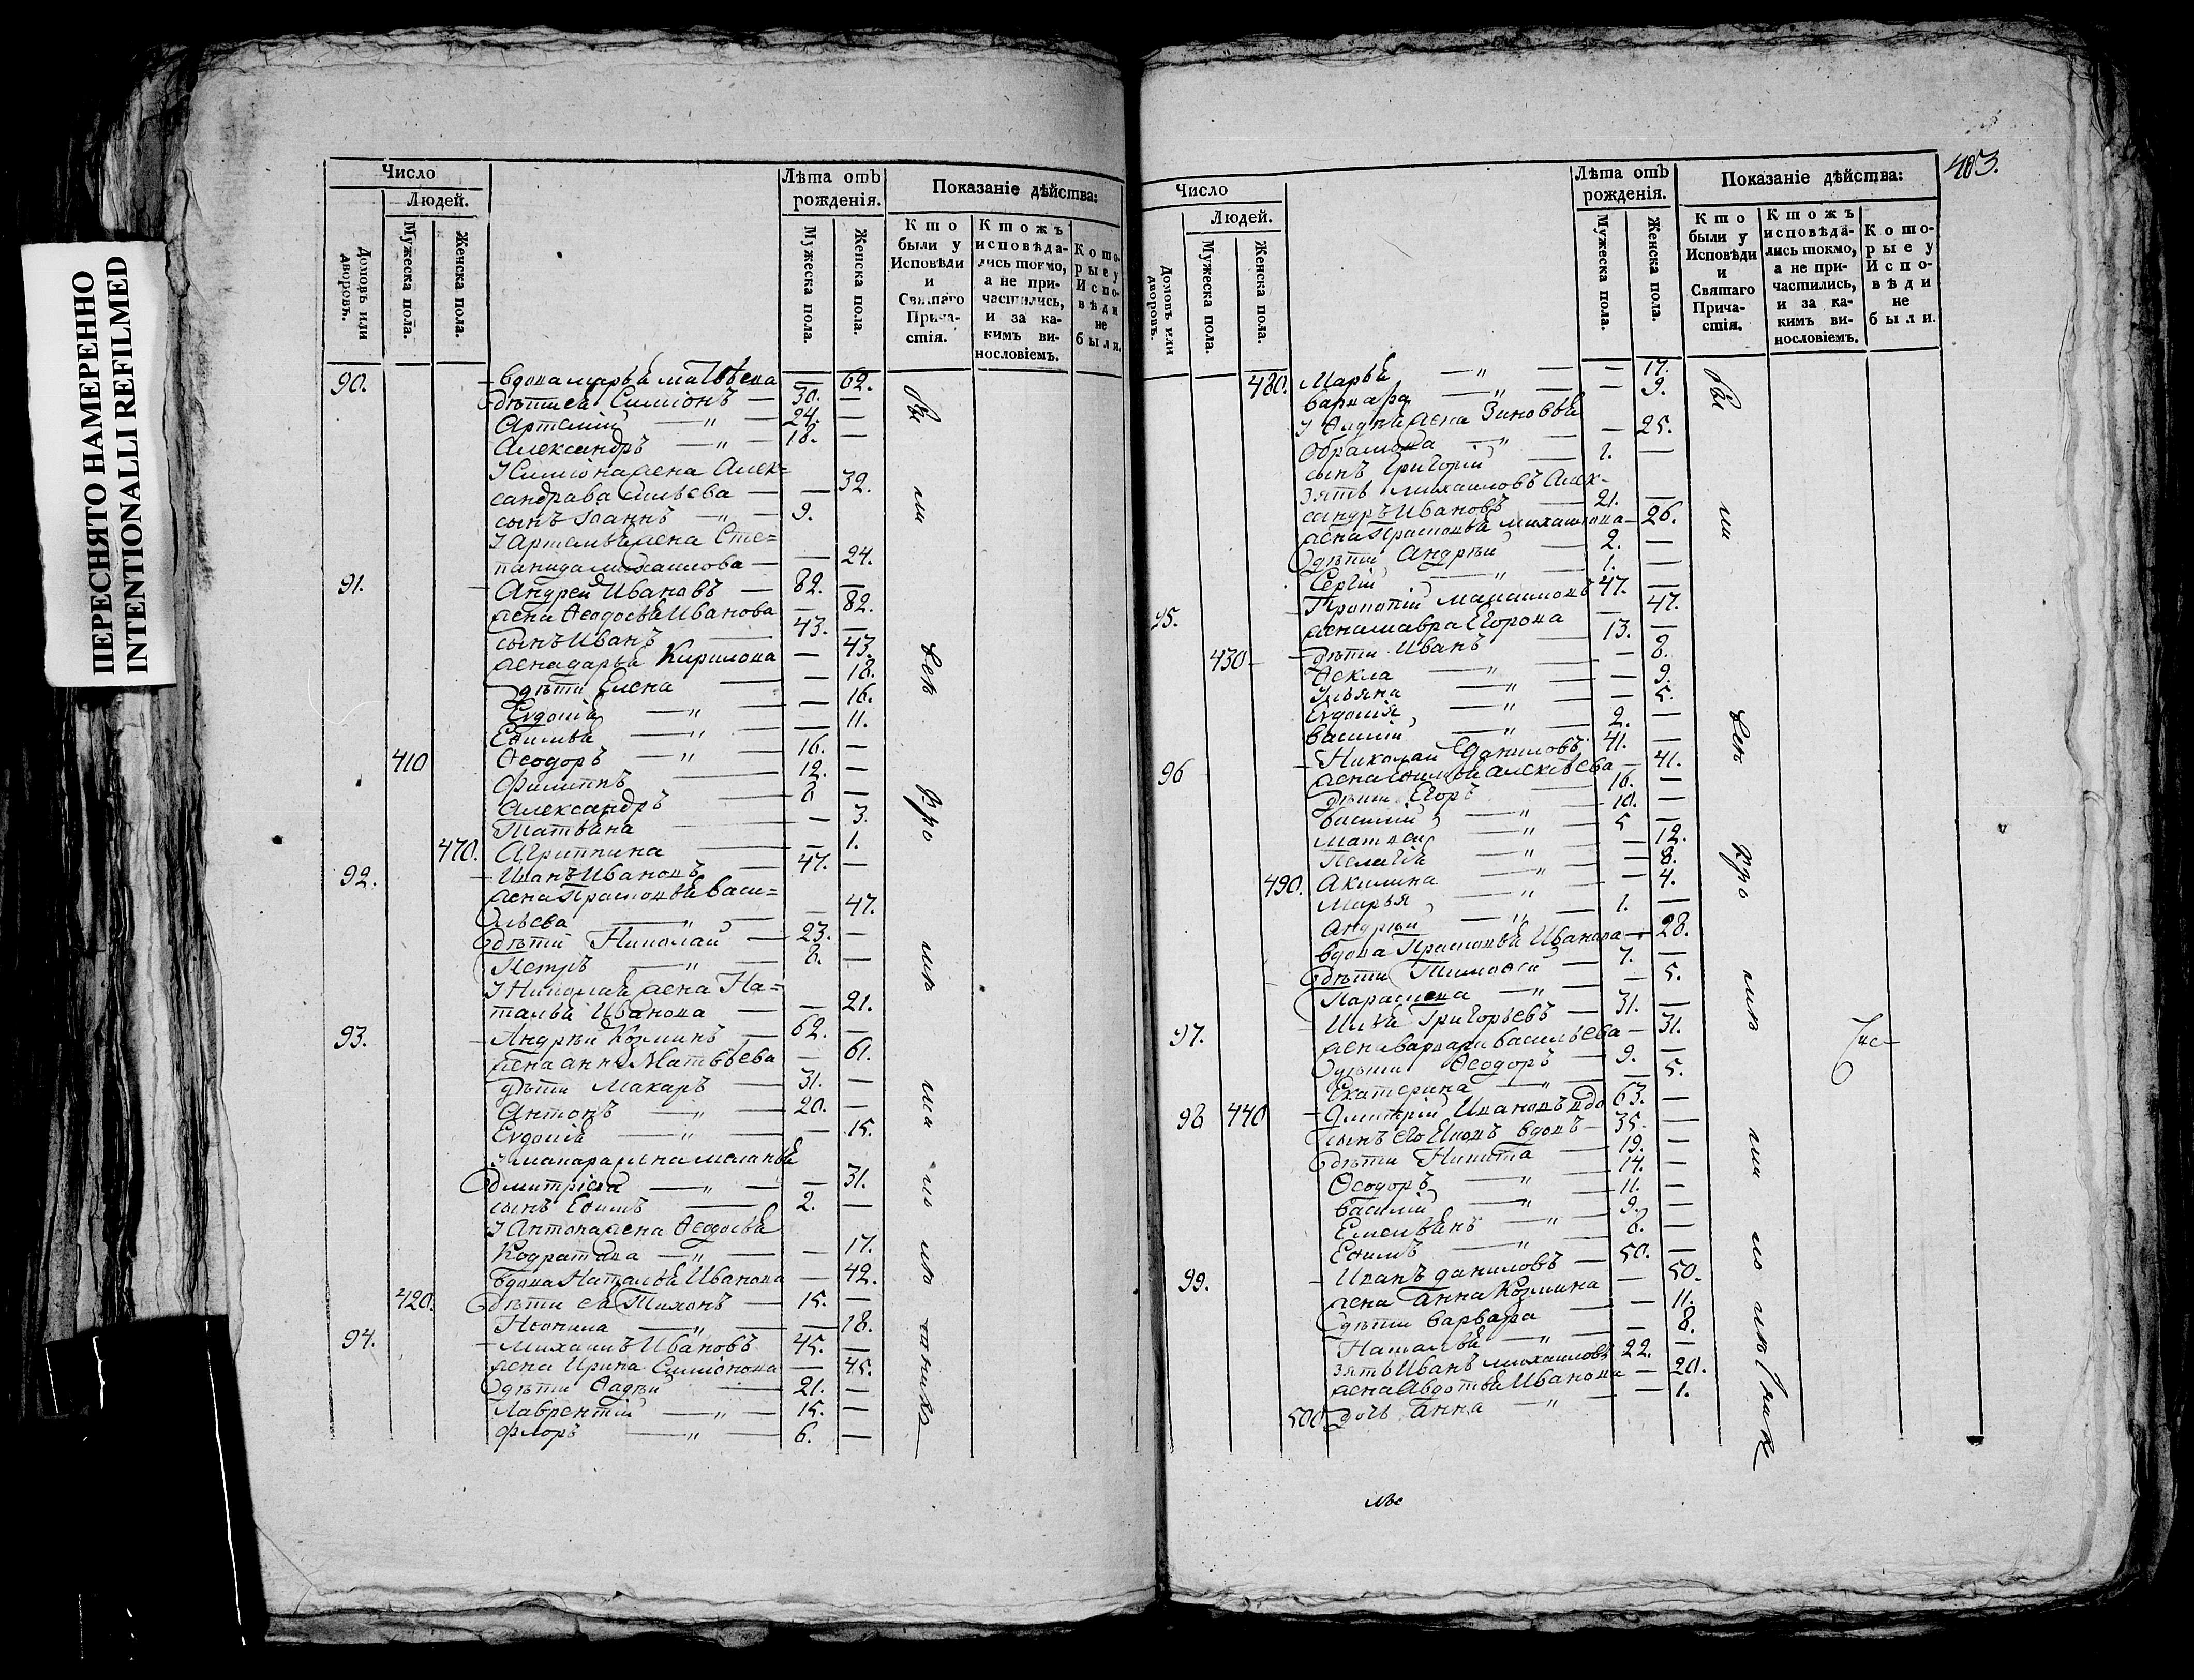 ПЕРЕСНЯТО НАМЕРЕННО
INTENTIONALLI REFILMED
Число
Людей.
Домовъ или дворовъ.
Мужеска пола.
Женска пола.
Лѣта отъ рожденія.
Мужеска пола.
Женска пола.
Показаніе дѣйства:
Кто были у Исповѣди и Святаго Прича-стія.
Ктожъ исповѣда-лись токмо, а не при-частились, и за ка-кимъ ви-нословіемъ.
Кото-рые у Испо-вѣди не были.
90. вдова марья матвѣева — 62.
дѣти ея Симіонъ — 30. —
Артемій — „ — 24. —
Александръ — „ — 18. —
У Симіона жена Алек=
сандра Савельева — — 32.
сынъ Іоаннъ — „ — 9.
У Артемья жена Сте=
панида михаилова — — 24.
91. Андрей Ивановъ — 82. —
жена Ѳеодосья Иванова — 82.
сынъ Иванъ — 43. —
жена дарья Кирилова — 43.
дѣти Елена — — 18.
Евдокія — „ — — 16.
Еѳимья — „ — — 11.
410 Ѳеодоръ — „ — 16. —
Филиппъ — 12. —
Александръ — 8 —
Татьяна — — 3.
470. Агриппина — — 1.
92. Иванъ Ивановъ — 47. —
жена Прасковья Васи=
льева — „ — — 47.
дѣти Николай — 23. —
Петръ — „ — 8. —
У Николая жена На=
талья Иванова — — 21.
93. Андрѣй Козминъ — 62. —
жена анна Матвѣева — 61.
дѣти Макаръ — 31. —
Антонъ — „ — 20. —
Евдокія — „ — — 15.
У макара жена маланья
дмитріева — „ — — 31.
сынъ Еѳимъ — 2. —
У Антона жена Ѳедосья
Кодратова — „ — — 17.
вдова Наталья Иванова — 42.
420. дѣти ея Тихонъ — 15. —
Неонила — „ — — 18.
94. михаилъ Ивановъ 45. —
жена Ирина Симіонова — 45.
дѣти Ѳадѣй — 21. —
Лаврентій — „ — 15. —
Флоръ — „ — 6. —
403.
Число
Людей.
Домовъ или дворовъ.
Мужеска пола.
Женска пола.
Лѣта отъ рожденія.
Мужеска пола.
Женска пола.
Показаніе дѣйства:
Кто были у Исповѣди и Святаго Прича-стія.
Ктожъ исповѣда-лись токмо, а не при-частились, и за ка-кимъ ви-нословіемъ.
Кото-рые у Испо-вѣди не были.
480. Марья — „ — — 17.
варвара — „ — — 9.
У Ѳадѣя жена Зиновья
Обрамова — „ — — 25.
сынъ Григорій — 1. —
зять михаиловъ Алек-
сандръ Ивановъ — 21. —
жена Прасковья михаилова — 26.
дѣти Андрѣй — 2. —
Сергій — „ — 1. —
95. Прокопій 47. —
жена мавра Егорова — 47.
430 дѣти Иванъ — 13. —
Ѳекла — „ — — 8.
Ульяна — „ — — 9.
Евдокія — „ — — 5.
василій — „ — 2. —
96 Николай Даниловъ 41. —
жена Еѳимья алексѣева — 41.
дѣти Егоръ — 16. —
василій — „ — 10. —
матвей — „ — 5 —
Пелагія — „ — — 12.
490. Акилина — „ — — 8.
Марья — „ — — 4.
Андрѣй — „ — 1. —
вдова Прасковья Иванова — 28.
дѣти Тимоѳей — 7. —
Параскева — „ — — 5.
97. Илья Григорьевъ — 31. —
жена варвара василѣева — 31.
дѣти Ѳеодоръ — 9. —
Екатерина — „ — — 5.
98 440 Дмитрій Ивановъ вдо 63. —
сынъ его вдовъ — 35. —
дѣти Никита — 19. —
Ѳеодоръ — „ — 14. —
василій — „ — 11. —
Емельянъ — „ — 9. —
Еѳимъ — „ — 6. —
99. Иванъ даниловъ — 50. —
жена анна Козмина — 50.
дѣти варвара — — 11.
Наталья — „ — — 8.
зять Иванъ михаиловъ 22. —
жена Авдотья Иванова — 20.
500 дочь анна — „ — — 1.